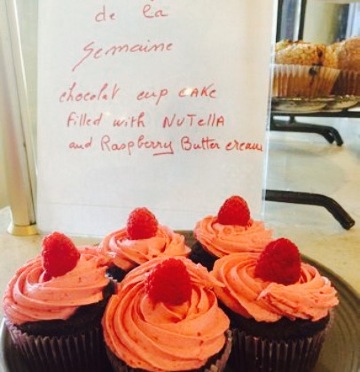 de la
semaine
chocolat cup CAKE
filled with NUTELLA
and Raspberry Butter cream